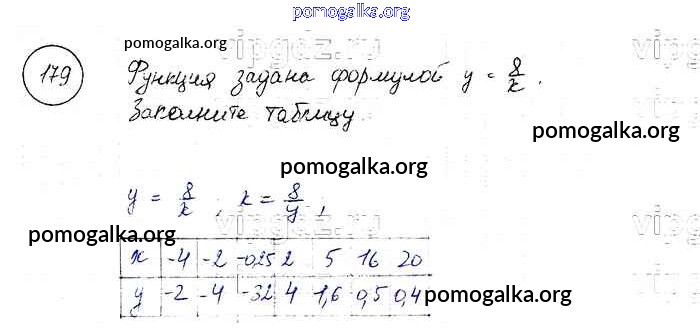 pomogalka.org
pomogalka.org
vipgdz.ru
179 Функция задана формулой y = 8/x.
Заполните таблицу.
pomogalka.org
pomogalka.org
y = 8/x ; x = 8/y ;
vipgdz.ru
pomogalka.org
x -4 -2 -0,25 2 5 16 20
y -2 -4 -32 4 1,6 0,5 0,4
pomogalka.org